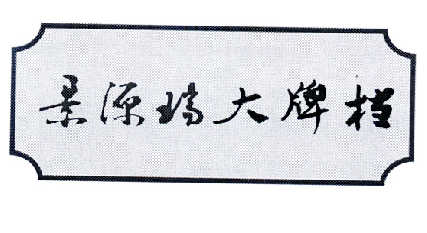 景源瑞大牌档